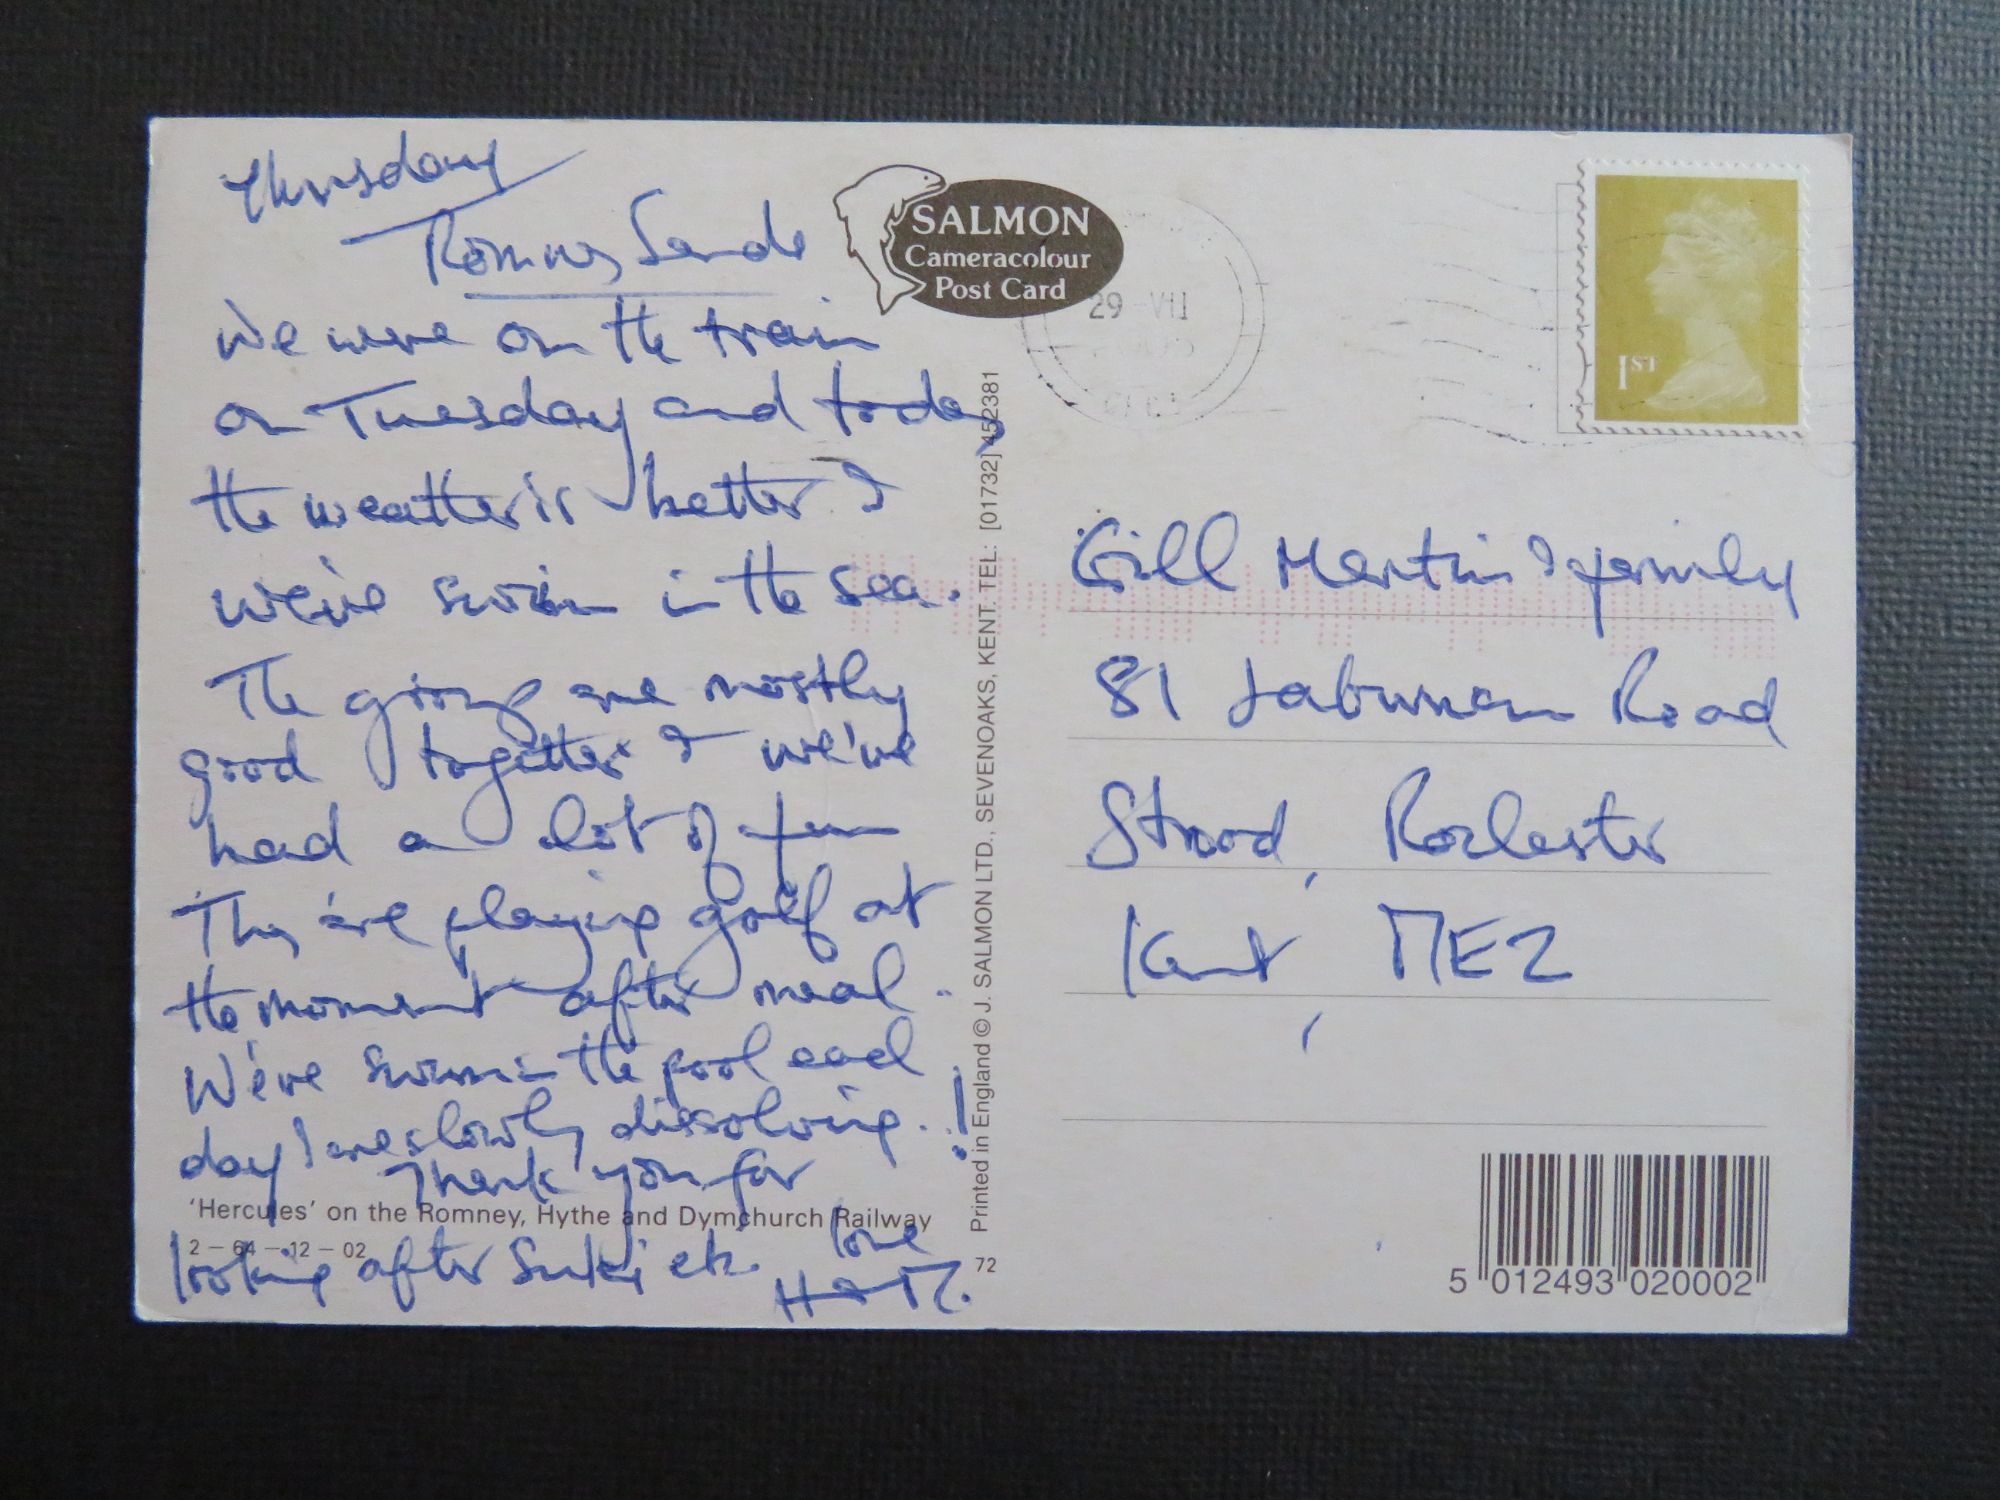 Thursday
Romney Sands
We were on the train
on Tuesday and today
the weather is better &
we've swim in the sea.
The group are mostly
good together & we've
had a lot of fun
They're playing golf at
the moment after meal.
We've swum in the pool each
day & are slowly dissolving..!
Thank you for
looking after Suki etc.
love
H & M.
'Hercules' on the Romney, Hythe and Dymchurch Railway
2 – 64 – 12 – 02
72
SALMON
Cameracolour
Post Card
Printed in England © J. SALMON LTD., SEVENOAKS, KENT. TEL: [01732] 452381
29 VII
1ST
Gill Martin & family
81 Laburnam Road
Strood, Rochester
Kent, ME2
5 012493 020002